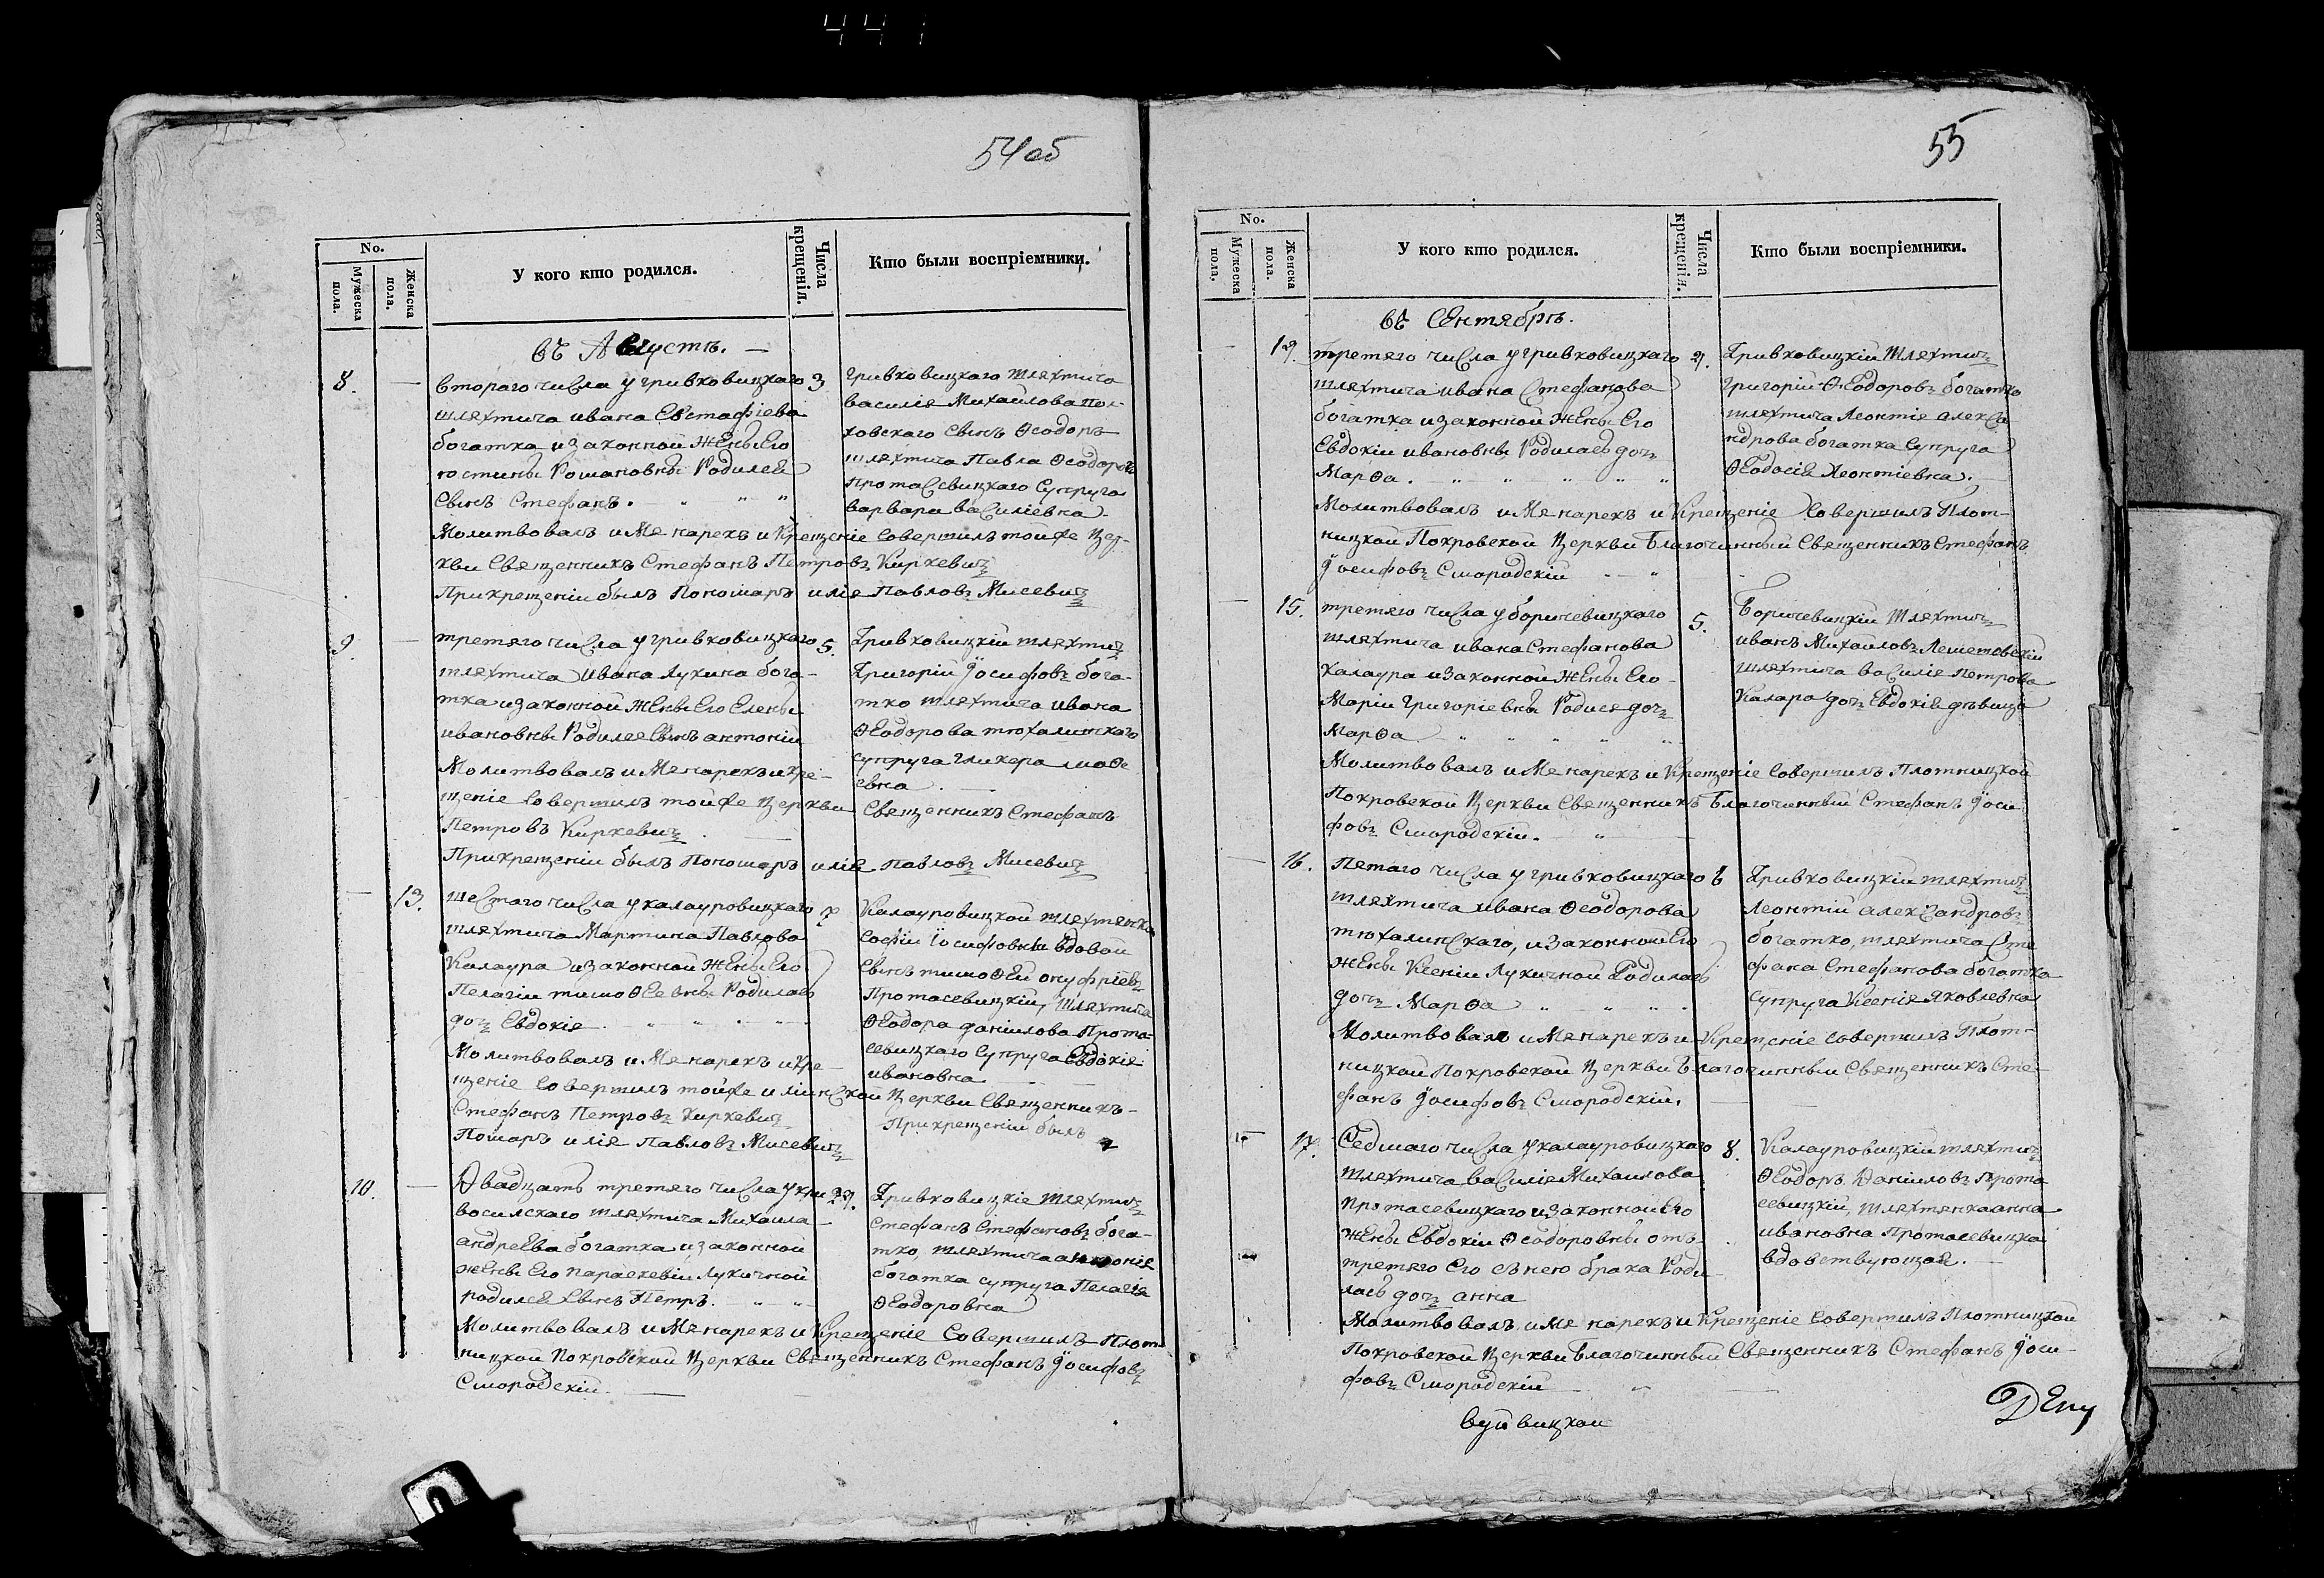 441
54об
No.
Мужеска пола.
Женска пола.
У кого кто родился.
Числа крещенія.
Кто были воспріемники.
въ Августѣ.
8.
втораго числа у гривковицкаго
шляхтича ивана Евстафіева
богатка и законной жены Его
юстины Романовны Родился
сынъ Стефанъ.
3
гривковицкаго шляхтича
василія Михаилова Пол-
ховскаго сынъ Ѳеодоръ
шляхтича Павла Ѳеодорова
Протасевицкаго Супруга
варвара василіевна.
Молитвовалъ имя нарекъ и Крещеніе совершилъ тойже цер-
кви Священникъ Стефанъ Петровъ Киркевичъ
При крещеніи былъ Пономаръ илія Павловъ Мисевичъ
9.
третяго числа у гривковицкаго
шляхтича Ивана Лукина бога-
тка и законной жены Его Елены
ивановны Родился сынъ антоній
Молитвовалъ имя нарекъ и кре-
щеніе совершилъ тойже церкви
Петровъ Киркевичъ.
5.
Гривковицкій шляхтичъ
Григорій Іосифовъ бога-
тко шляхтича ивана
Ѳеодорова тюхалинскаго
супруга гликера
евна.
Священникъ Стефанъ
При крещеніи былъ Пономаръ илія павловъ Мисевичъ
13.
шестаго числа у калауровицкаго
шляхтича Мартина Павлова
Калаура и законной жены Его
Пелагіи тимоѲеевны Родилась
дочъ Евдокія.
Молитвовалъ имя нарекъ и кре-
щеніе совершилъ тойже илинской церкви Священникъ
Стефанъ Петровъ Киркевичъ
Помаръ илія павловъ Мисевичъ
7
Калауровицкой шляхтянки
Софіи іосифовны вдовой
сынъ тимоѲей онуфріевъ
Протасевицкій, шляхтича
Ѳеодора даніилова Прота-
севицкаго супруга Евдокія
ивановна
При крещеніи былъ
10.
Двадцать третяго числа у кри
восилскаго шляхтича Михаила
андреева богатка и законной
жены Его параскевіи Лукичной
родился сынъ Петръ.
24.
Гривковицкіе шляхтичъ
Стефанъ Стефановъ бога-
тко, шляхтича антонія
богатка супруга Пелагія
Ѳеодоровна
Молитвовалъ имя нарекъ и Крещеніе Совершилъ Плот-
ницкой Покровской церкви Священникъ Стефанъ Іосифовъ
Смородскій.
55
No.
Мужеска пола.
Женска пола.
У кого кто родился.
Числа крещенія.
Кто были воспріемники.
въ Сентябрѣ.
14.
третяго числа у гривковицкаго
шляхтича ивана Стефанова
богатка и законной жены Его
Евдокіи ивановны Родилась дочъ
МарѲа.
4.
Гривковицкій шляхтичъ
григорій Ѳеодоровъ богатко
шляхтича Леонтія алекса-
ндрова богатка супруга
Ѳеодосія Леонтіевна.
Молитвовалъ имя нарекъ и Крещеніе совершилъ Плот-
ницкой Покровской церкви Благочинный Священникъ Стефанъ
Іосифовъ Смородскій
15.
третяго числа у боричевицкаго
шляхтича ивана Стефанова
Калаура и законной жены Его
Маріи григоріевны Родися дочъ
МарѲа.
5.
Боричевицкій шляхтичъ
иванъ Михаиловъ Лешетовскій
шляхтича василія петрова
Калара дочъ Евдокія дѣвица
Молитвовалъ имя нарекъ и Крещеніе совершилъ Плотницкой
Покровской церкви Священникъ Благочинный Стефанъ Іоси
фовъ Смородскій.
16.
Пятаго числа у гривковицкаго
шляхтича ивана Ѳеодорова
тюхалинскаго, и законной Его
жены Ксеніи Лукичной Родилась
дочъ МарѲа
6
Гривковицкій шляхтичъ
Леонтій александровъ
богатко, шляхтича Сте
фана Стефанова богатка
супруга Ксенія яковлевна
Молитвовалъ имя нарекъ и Крещеніе совершилъ Плот-
ницкой Покровской церкви Благочинный Священникъ Сте-
фанъ Іосифовъ Смородскій.
17.
Седмаго числа у калауровицкаго
шляхтича василія Михаилова
протасевицкаго и законной Его
жены Евдокіи Ѳеодоровны отъ
третяго Его съ нею брака Роди-
лась дочъ анна
8.
Калауровицкій шляхтичъ
Ѳеодоръ Даніиловъ Прота
севицкій, шляхтянка анна
ивановна Протасевицка
вдовствующая.
Молитвовалъ имя нарекъ и Крещеніе совершилъ Плотницкой
Покровской церкви Благочинный Священникъ Стефанъ Іоси-
фовъ Смородскій
вуйвицкой
Депу